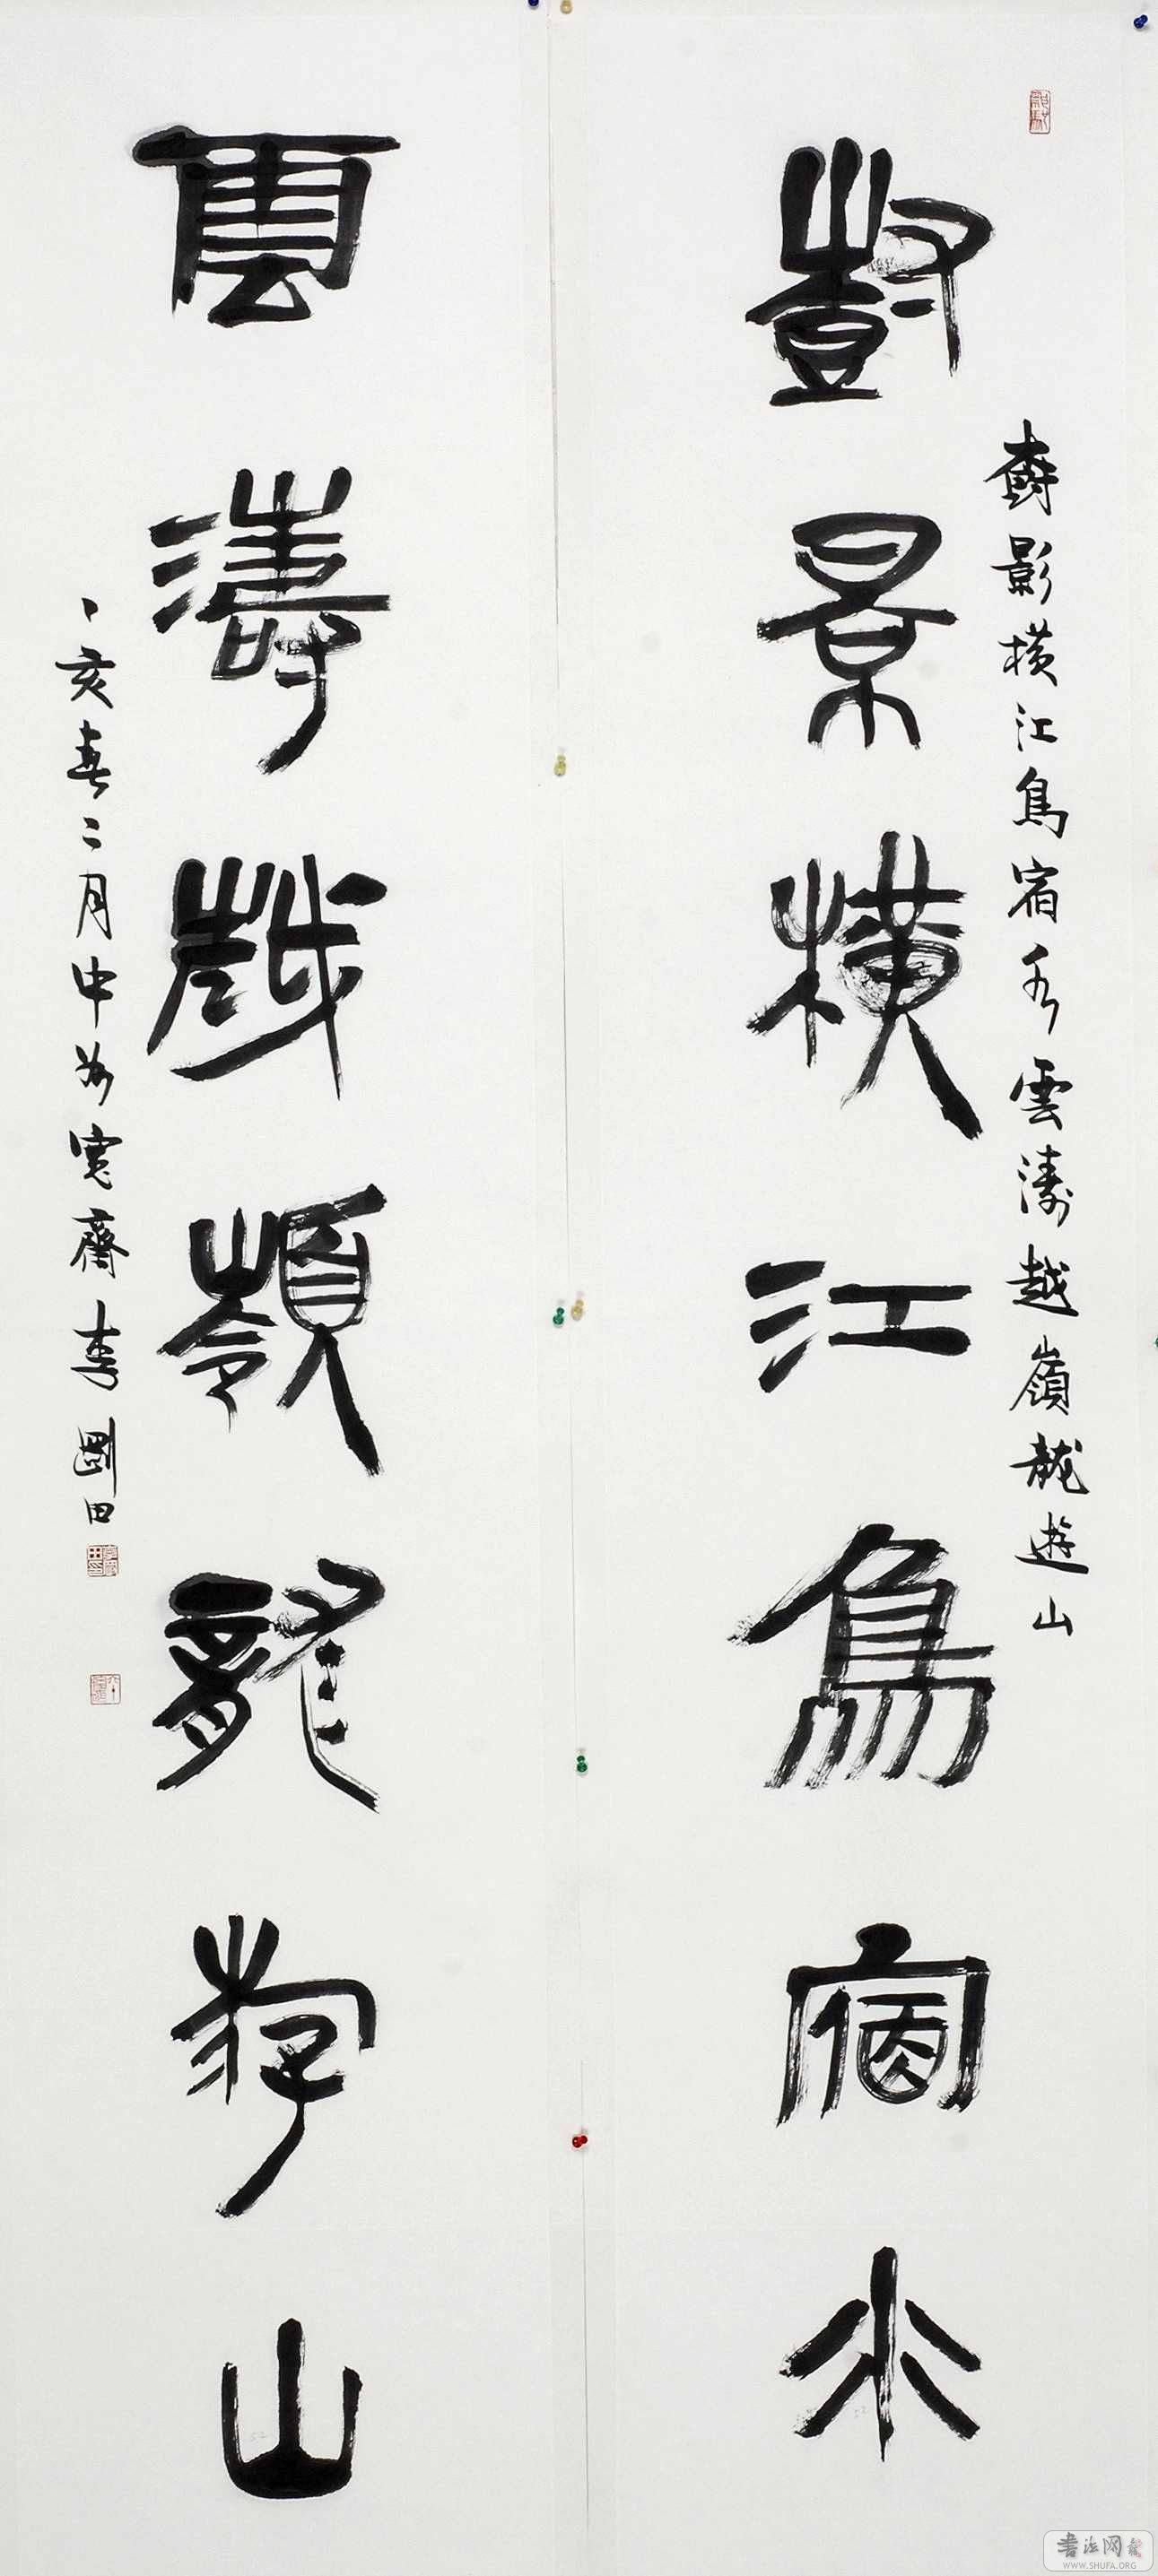 尌景橫江鳥宿水
尌影橫江鳥宿水雲濤越嶺龍遊山
雲濤越嶺龍游山
丁亥春二月中於寬齋李剛田
書法网
WWW.SHUFA.ORG